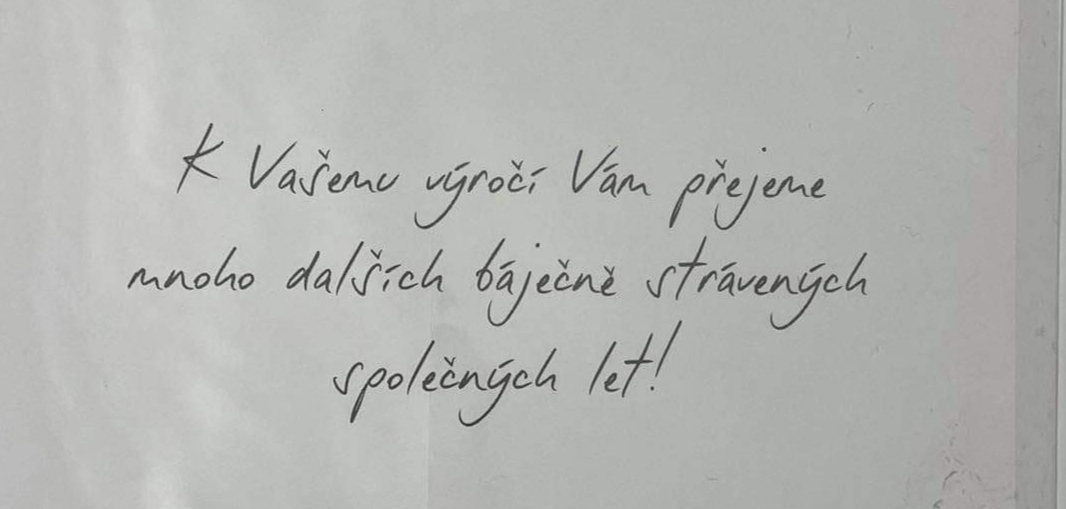 K Vašemu výročí Vám přejeme
mnoho dalších báječně strávených
společných let!